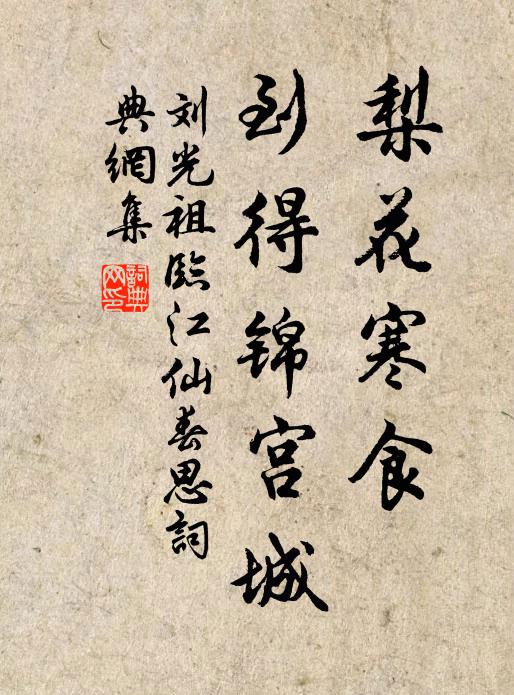 梨花寒食
到得锦宫城
刘光祖臨江仙春思詞
典網集
詞典
网印